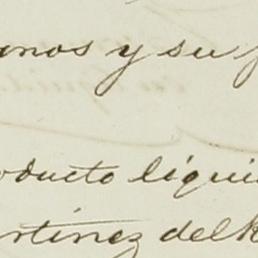 anos y su
oducto líqui
artinez del R